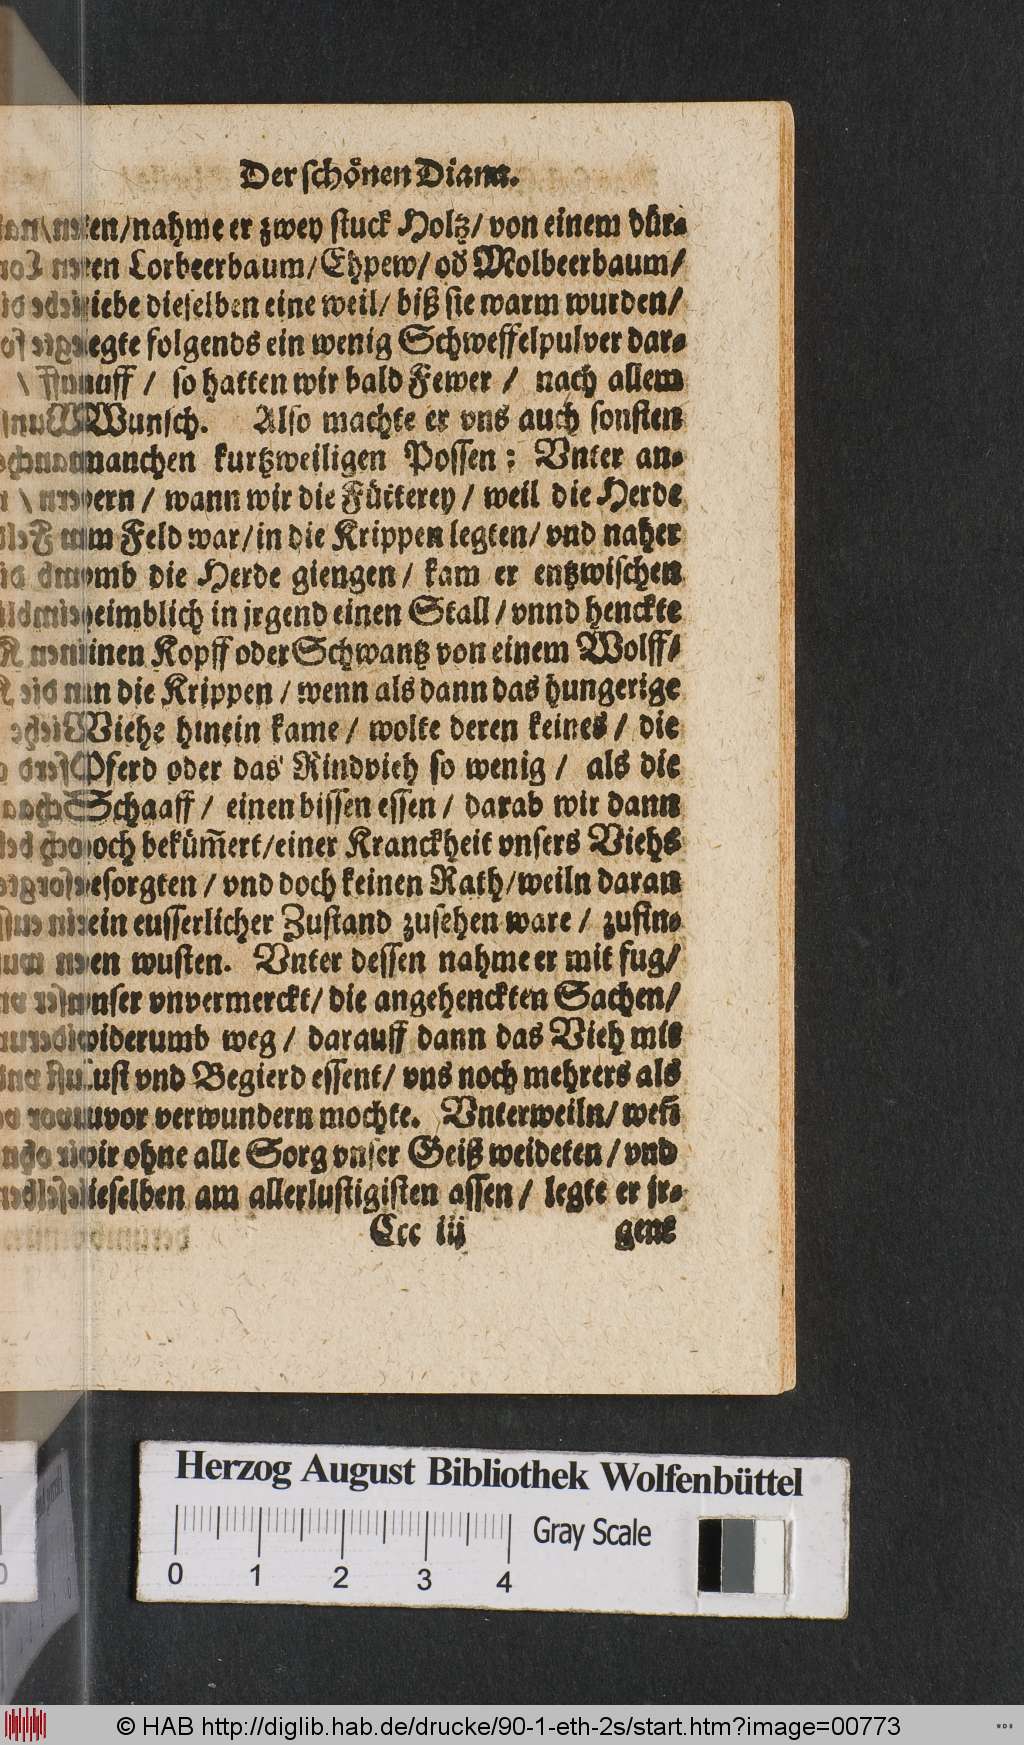 Der schönen Diana.
ten/nahme er zwey stuck Holtz/ von einem dür-
ren Lorbeerbaum/ Ehpew/ od Molbeerbaum/
riebe dieselben eine weil/ biß sie warm wurden/
legte folgends ein wenig Schweffelpulver dar-
auff / so hatten wir bald Fewer / nach allem
Wunsch. Also machte er vns auch sonsten
manchen kurtzweiligen Possen: Vnter an-
dern / wann wir die Fütterey / weil die Herde
im Feld war/ in die Krippen legten/ vnd naher
vmb die Herde giengen/ kam er entzwischen
heimblich in jrgend einen Stall / vnnd henckte
einen Kopff oder Schwantz von einem Wolff/
an die Krippen / wenn als dann das hungerige
Viehe hinein kame / wolte deren keines / die
Pferd oder das Rindvieh so wenig / als die
Schaaff / einen bissen essen / darab wir dann
hoch bekům̃ert/ einer Kranckheit vnsers Viehs
besorgten / vnd doch keinen Rath/ weiln daran
kein eusserlicher Zustand zusehen ware / zufin-
den wusten. Vnter dessen nahme er mit fug/
vnser vnvermerckt/ die angehenckten Sachen/
widerumb weg / darauff dann das Vieh mit
Lust vnd Begierd essent/ vns noch mehrers als
zuvor verwundern mochte. Vnterweiln/ weñ
wir ohne alle Sorg vnser Geiß weideten / vnd
dieselben am allerlustigisten assen / legte er jr-
Ccc iij gent
Herzog August Bibliothek Wolfenbüttel
0 1 2 3 4 Gray Scale
© HAB http://diglib.hab.de/drucke/90-1-eth-2s/start.htm?image=00773